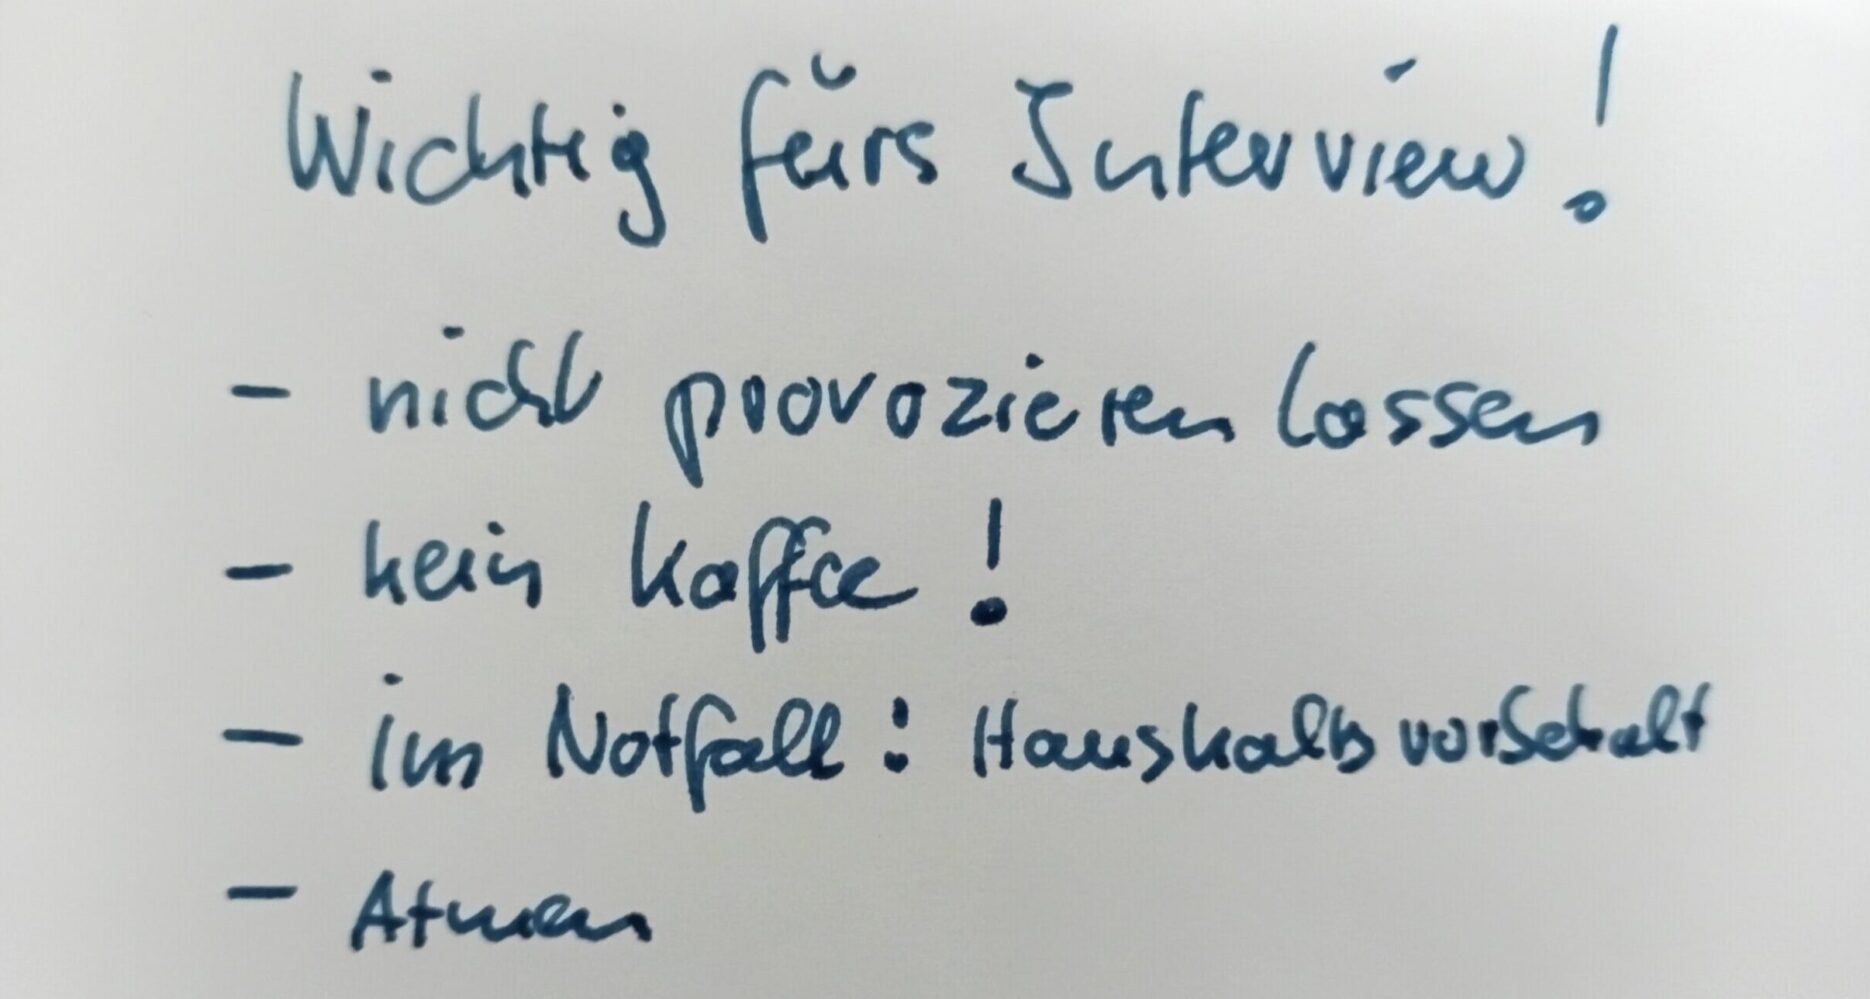 Wichtig fürs Interview!
- nicht provozieren lassen
- kein Kaffee!
- im Notfall: Haushaltsvorschalt
- Atmen